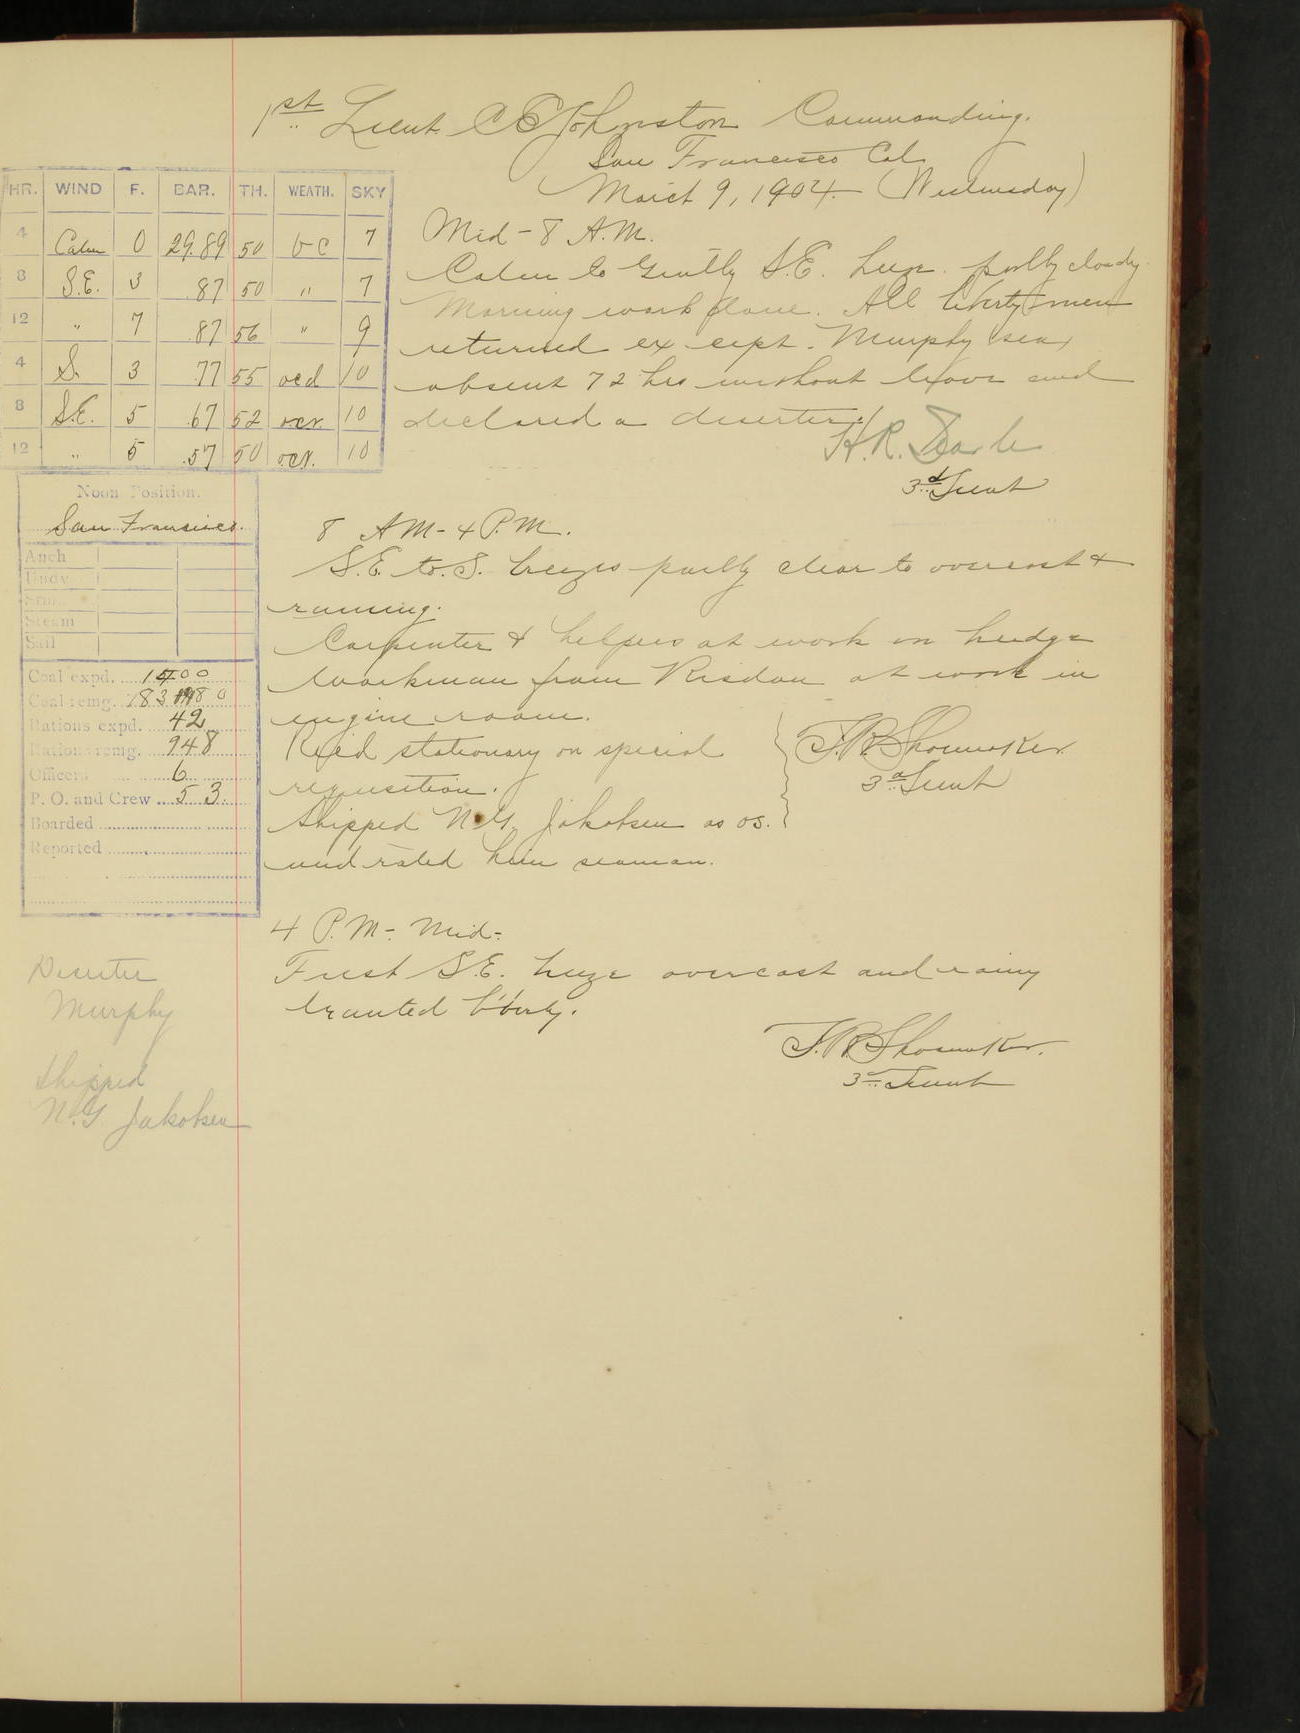 1st Lieut C E Johnston Commanding.
San Francisco Cal
March 9, 1904. (Wednesday)
HR. WIND F. BAR. TH. WEATH. SKY
4 Calm 0 29.89 50 bc 7
8 S.E. 3 .87 50 " 7
12 " 7 .87 56 " 9
4 S. 3 .77 55 ocd 10
8 S.E. 5 .67 52 ocr. 10
12 " 5 .57 50 ocr. 10
Mid - 8 A.M.
Calm to gently S.E. breeze. partly cloudy.
Morning work done. All liberty men
returned except. Murphy (sea)
absent 72 hrs without leave and
declared a deserter.
H.R.
3d Lieut
Noon Position.
San Francisco.
Anch
Undy
Stm
Steam
Sail
Coal expd. 1400
Coal remg.
Rations expd. 42
Rations remg. 948
Officers 6
P. O. and Crew 53
Boarded
Reported
8 AM - 4 P.M.
S.E. to S. breezes partly clear to overcast &
raining.
Carpenter & helpers at work on bridge
Workman from Risdon at work in
engine room.
Recd stationary on special
requisition.
Shipped N.G. Jakobsen as os.
and rated him seaman.
F.R. Shoemaker.
3d Lieut
4 P.M - Mid -
Fresh S.E. breeze overcast and rainy
Granted liberty.
F.R. Shoemaker.
3d Lieut
Deserter
Murphy
Shipped
N.G. Jakobsen